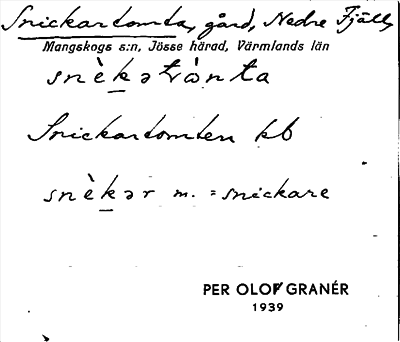 Snickartomta, gård, Nedre Fjäll,
Mangskogs s:n, Jösse härad, Värmlands län
snèkətòmta
Snickartomten kb
snèkər m. = snickare
PER OLOF GRANÉR
1939